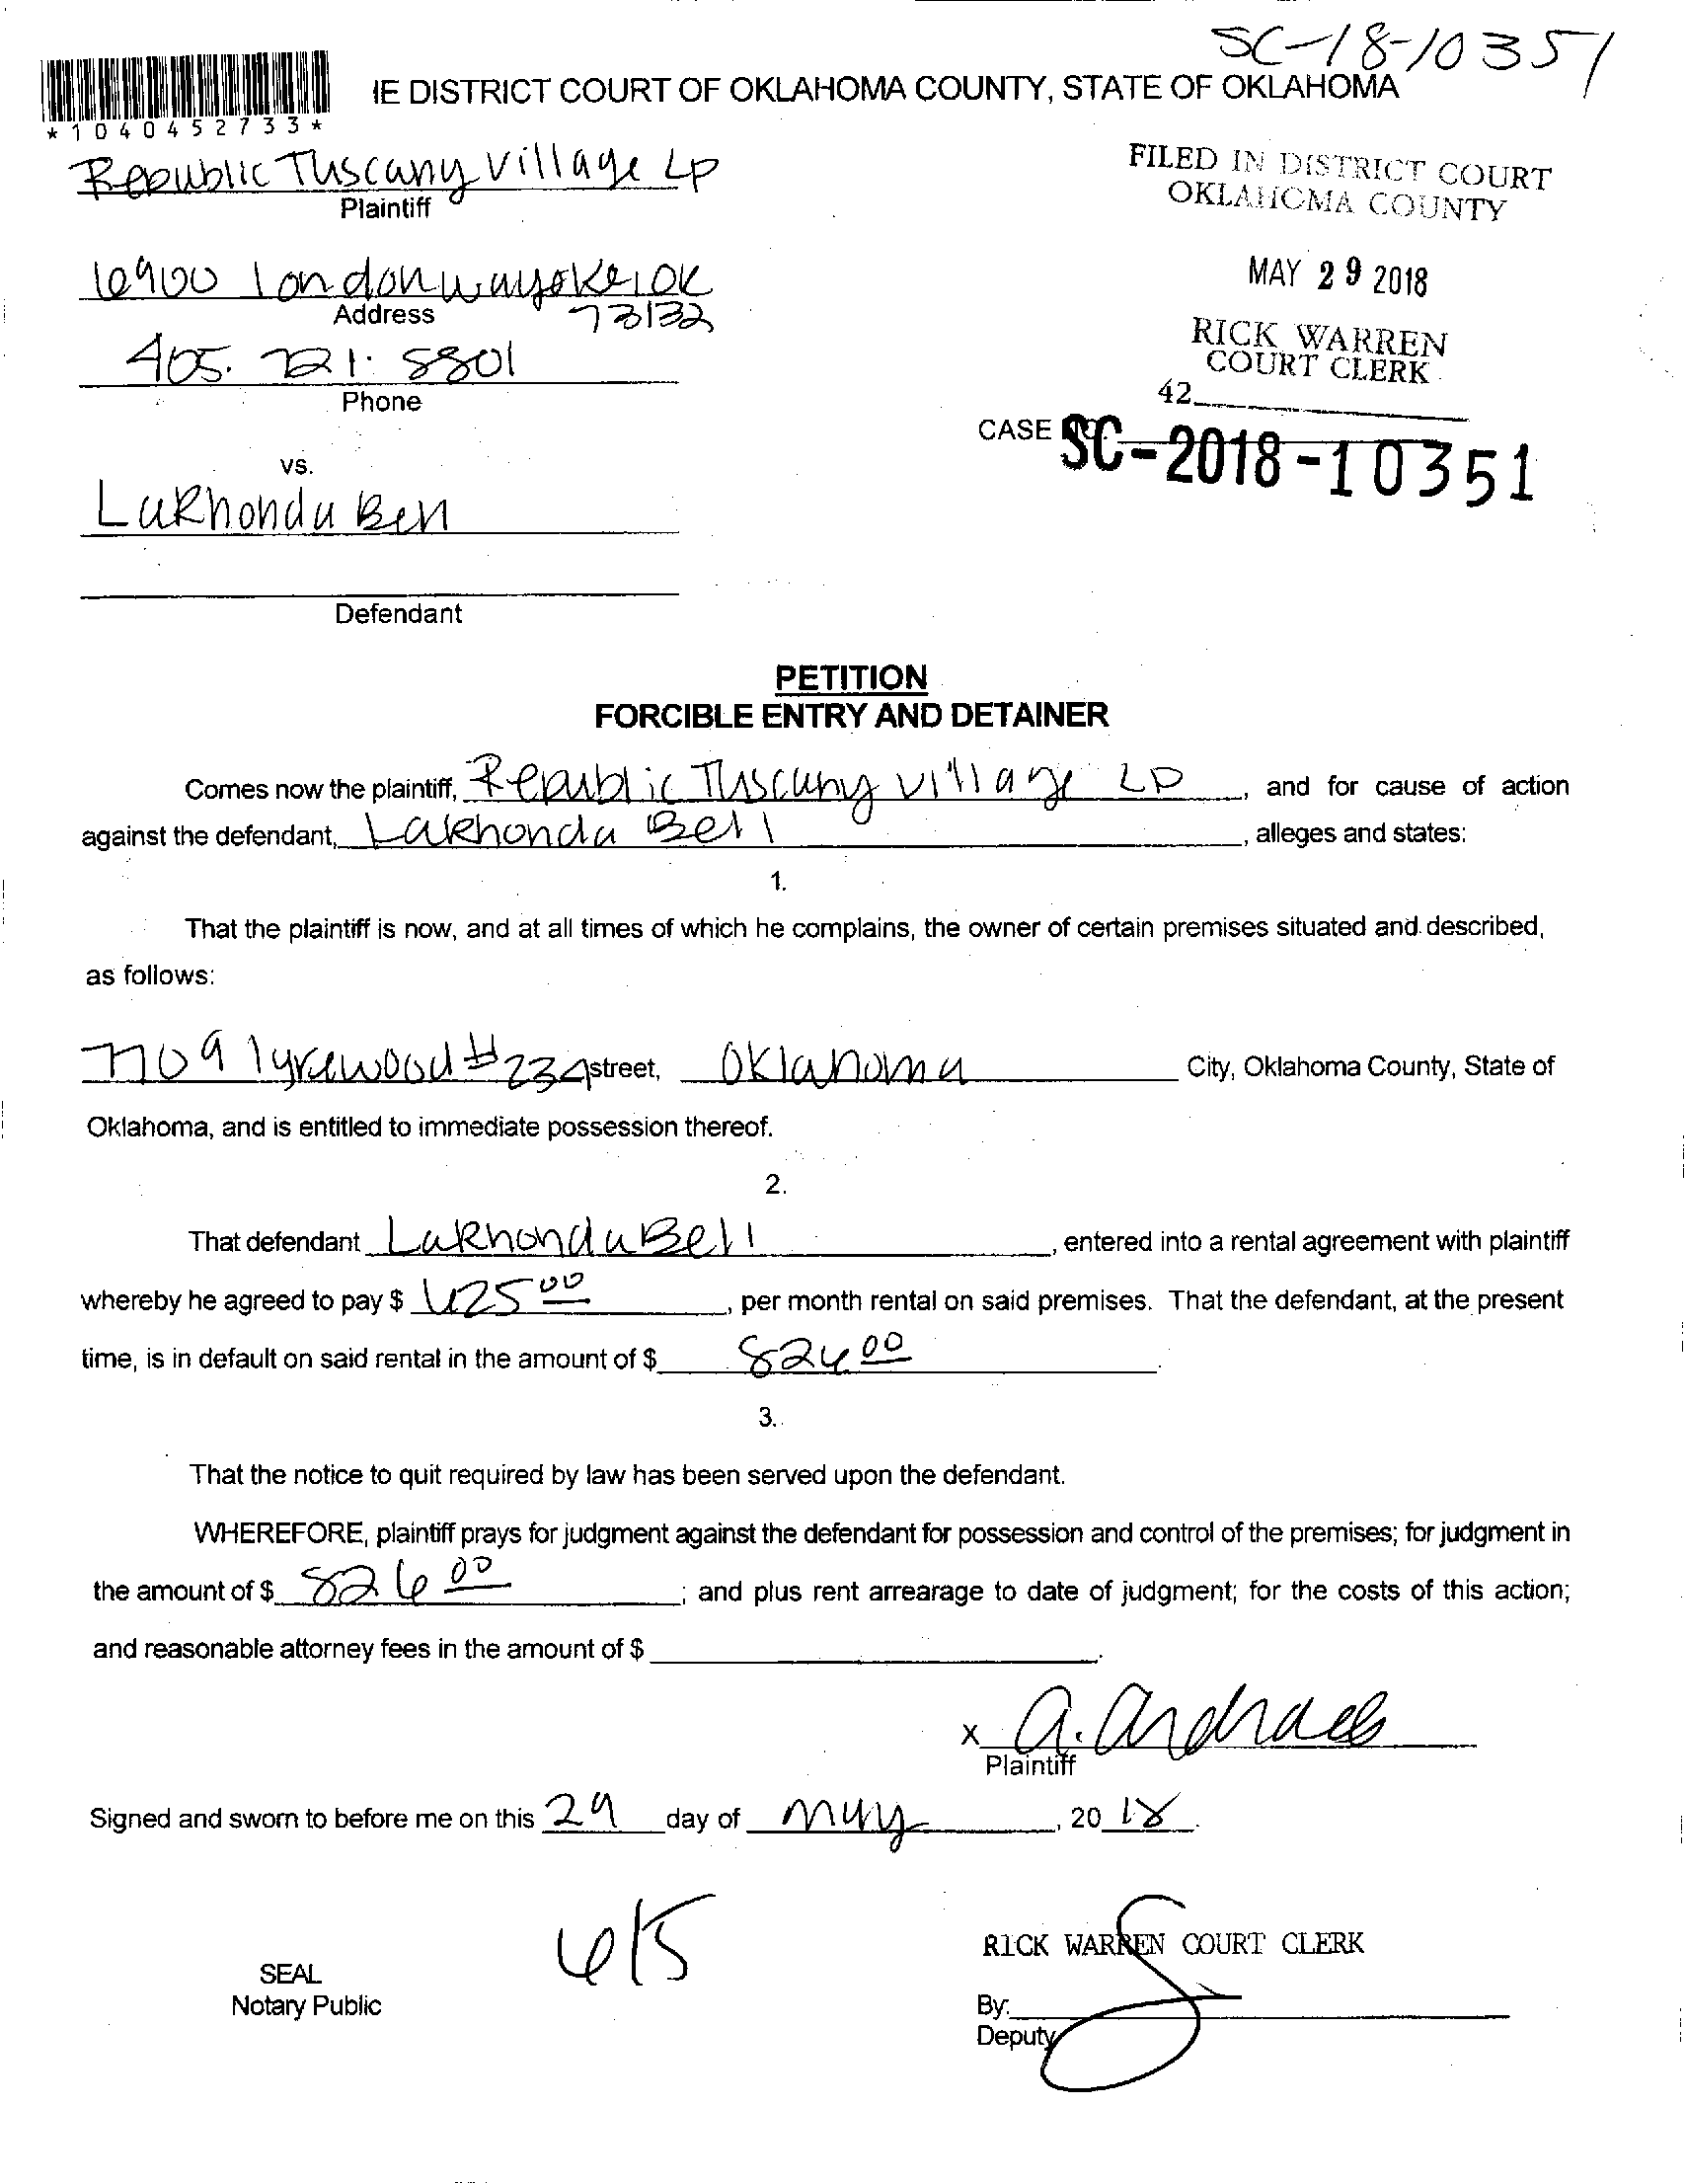 SC-18-10351
IE DISTRICT COURT OF OKLAHOMA COUNTY, STATE OF OKLAHOMA
*1040452733*
Republic Tuscany Village LP
Plaintiff
FILED IN DISTRICT COURT
OKLAHOMA COUNTY
6900 London way OK
Address
73132
MAY 29 2018
405. 721. 8801
Phone
RICK WARREN
COURT CLERK
42
CASE NO. SC-2018-10351
vs.
LaRhonda Bell
Defendant
PETITION
FORCIBLE ENTRY AND DETAINER
Comes now the plaintiff, Republic Tuscany Village LP, and for cause of action
against the defendant, LaRhonda Bell, alleges and states:
1.
That the plaintiff is now, and at all times of which he complains, the owner of certain premises situated and described,
as follows:
7709 lyrewood #234 street, Oklahoma City, Oklahoma County, State of
Oklahoma, and is entitled to immediate possession thereof.
2.
That defendant LaRhonda Bell, entered into a rental agreement with plaintiff
whereby he agreed to pay $ 625 00, per month rental on said premises. That the defendant, at the present
time, is in default on said rental in the amount of $ 826 00.
3.
That the notice to quit required by law has been served upon the defendant.
WHEREFORE, plaintiff prays for judgment against the defendant for possession and control of the premises; for judgment in
the amount of $ 826 00; and plus rent arrearage to date of judgment; for the costs of this action;
and reasonable attorney fees in the amount of $.
x A.
Plaintiff
Signed and sworn to before me on this 29 day of May, 20 18.
6/5
RICK WARREN COURT CLERK
SEAL
Notary Public
By:
Deputy